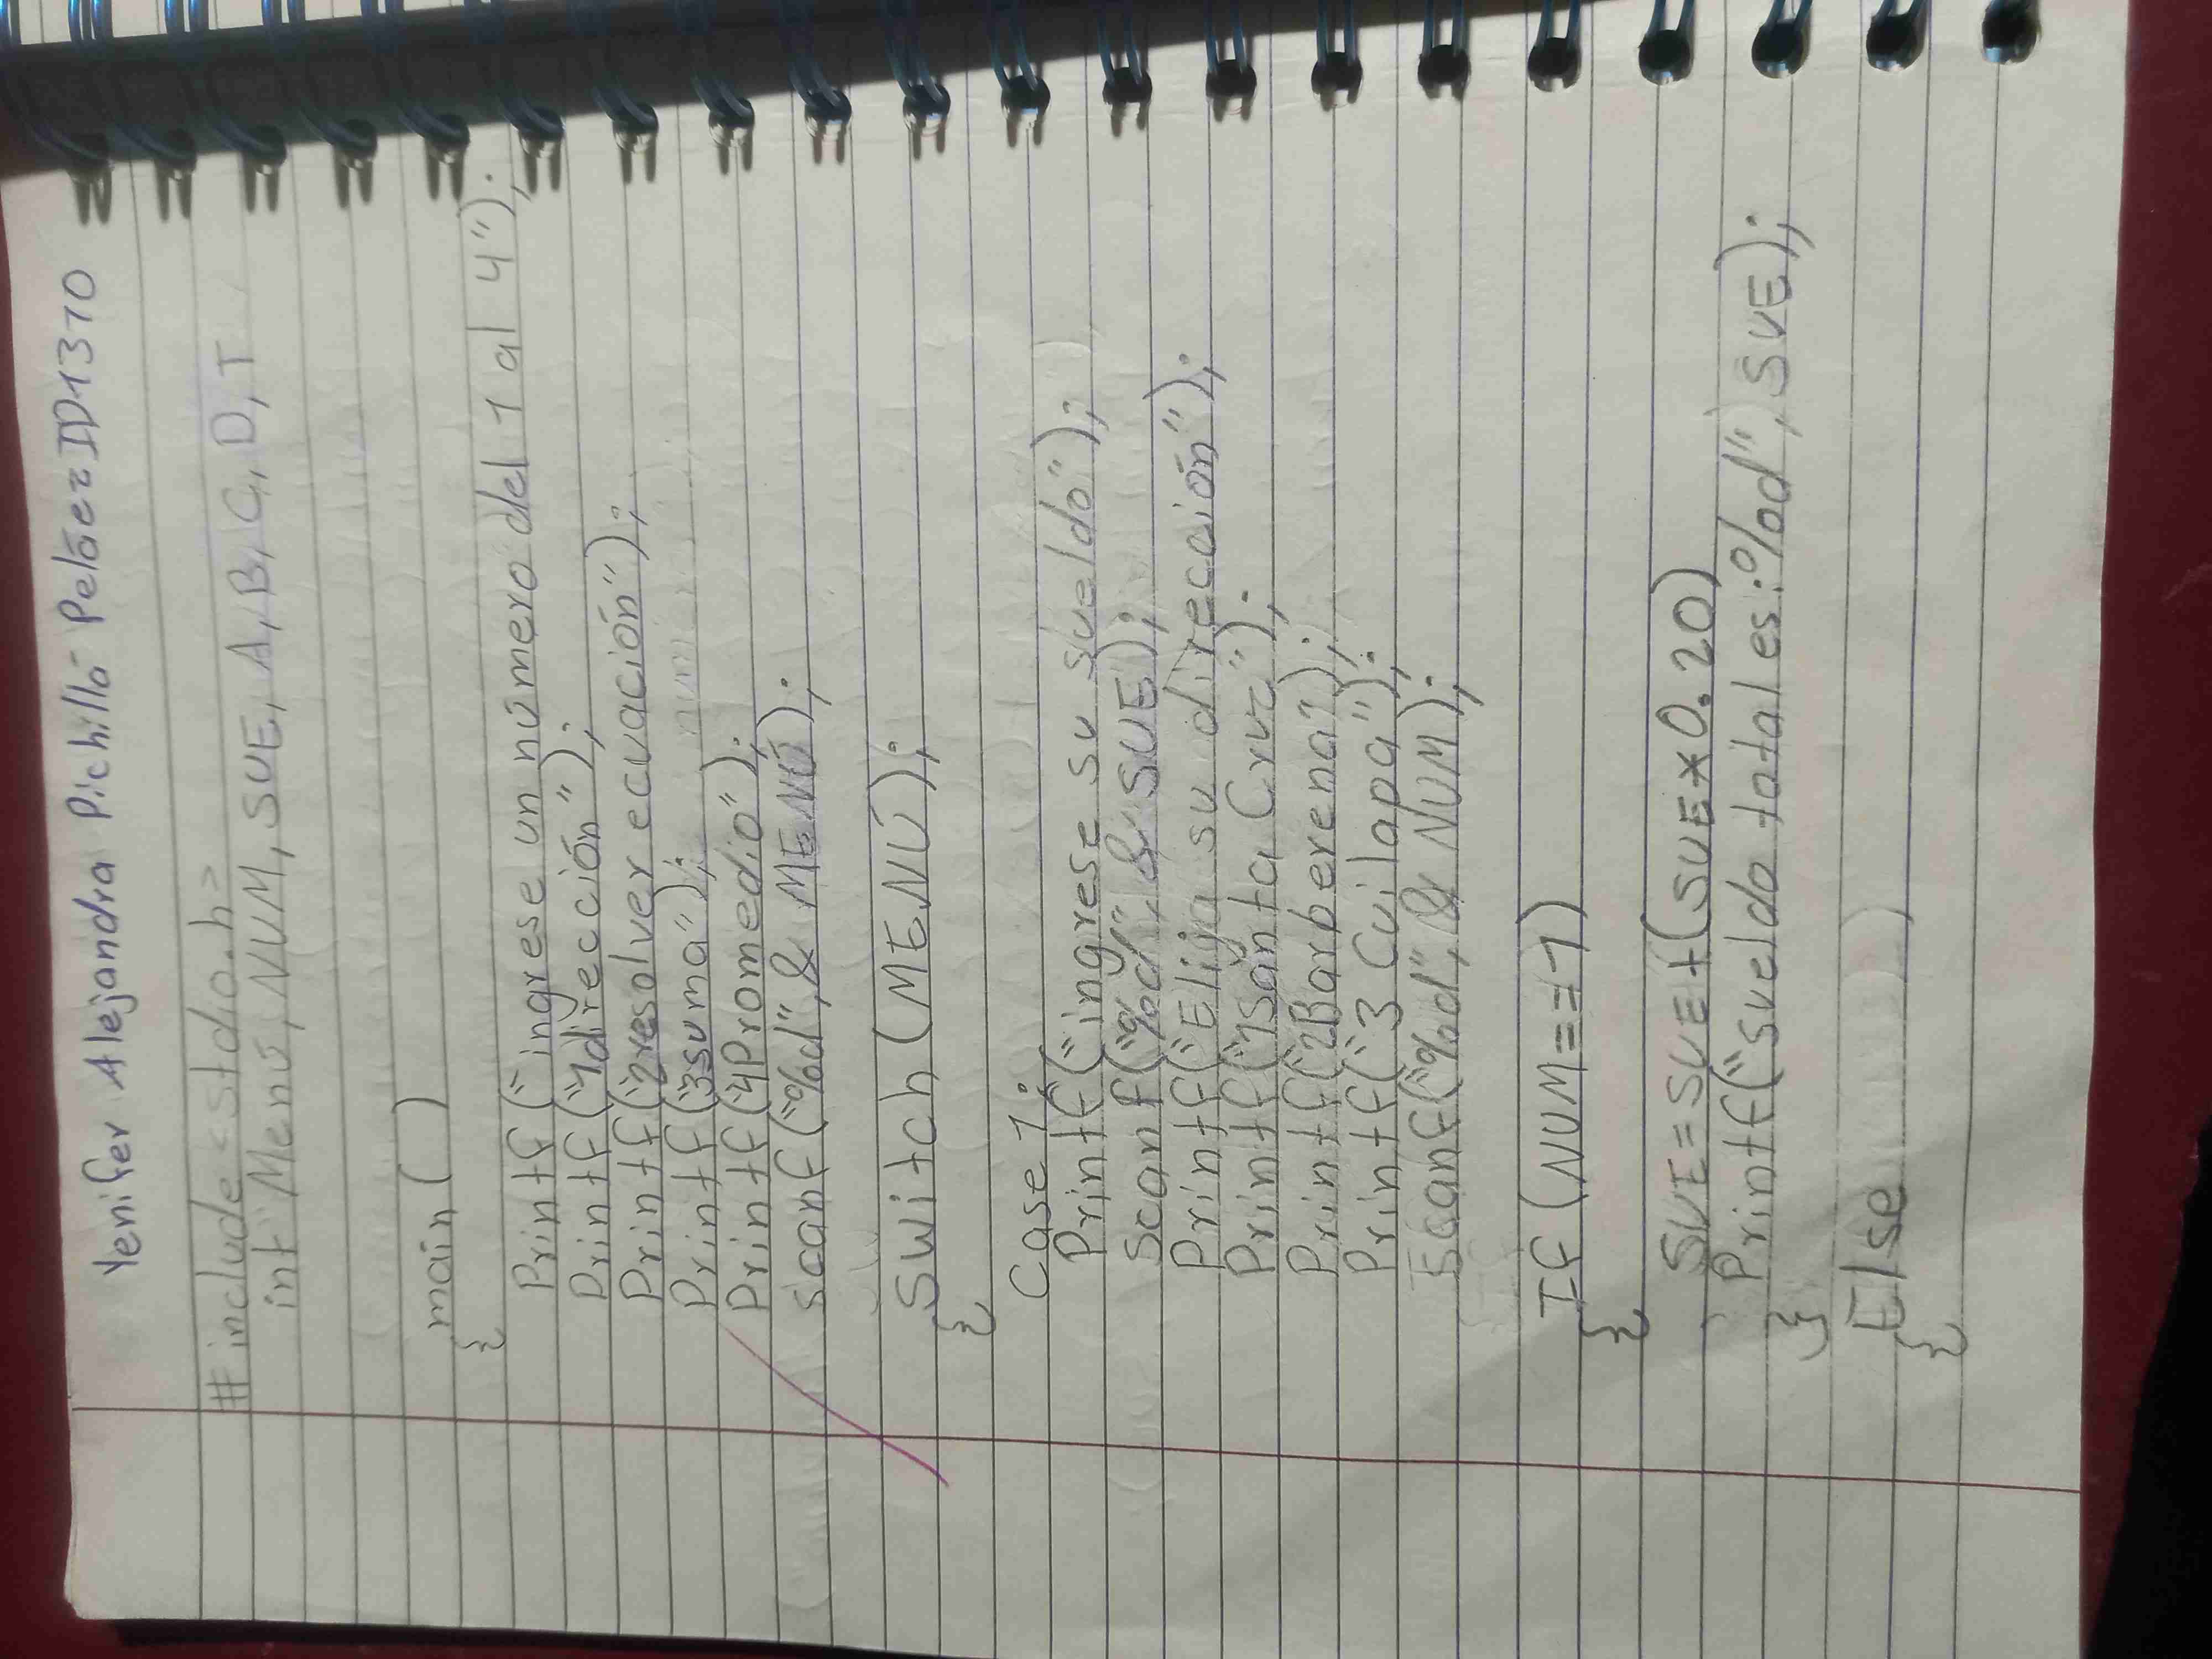 Yenifer Alejandra Pichillá Peláez ID1370
# include <stdio.h>
int Menú, NUM, SUE, A, B, C, D, T
main ( )
{
Printf ("ingrese un número del 1 al 4");
Printf ("1dirección");
Printf ("2resolver ecuación");
Printf ("3suma");
Printf ("4Promedio");
scanf ("%d", & MENÚ);
Switch (MENÚ);
{
Case 1:
Printf ("ingrese su sueldo");
Scanf ("%d", & SUE);
Printf ("Elija su dirección");
Printf ("1Santa Cruz");
Printf ("2Barberena");
Printf ("3 Cuilapa");
Scanf ("%d", & NUM);
If (NUM==1)
{
SUE=SUE+(SUE*0.20)
Printf ("sueldo total es:%d", SUE);
}
Else
{